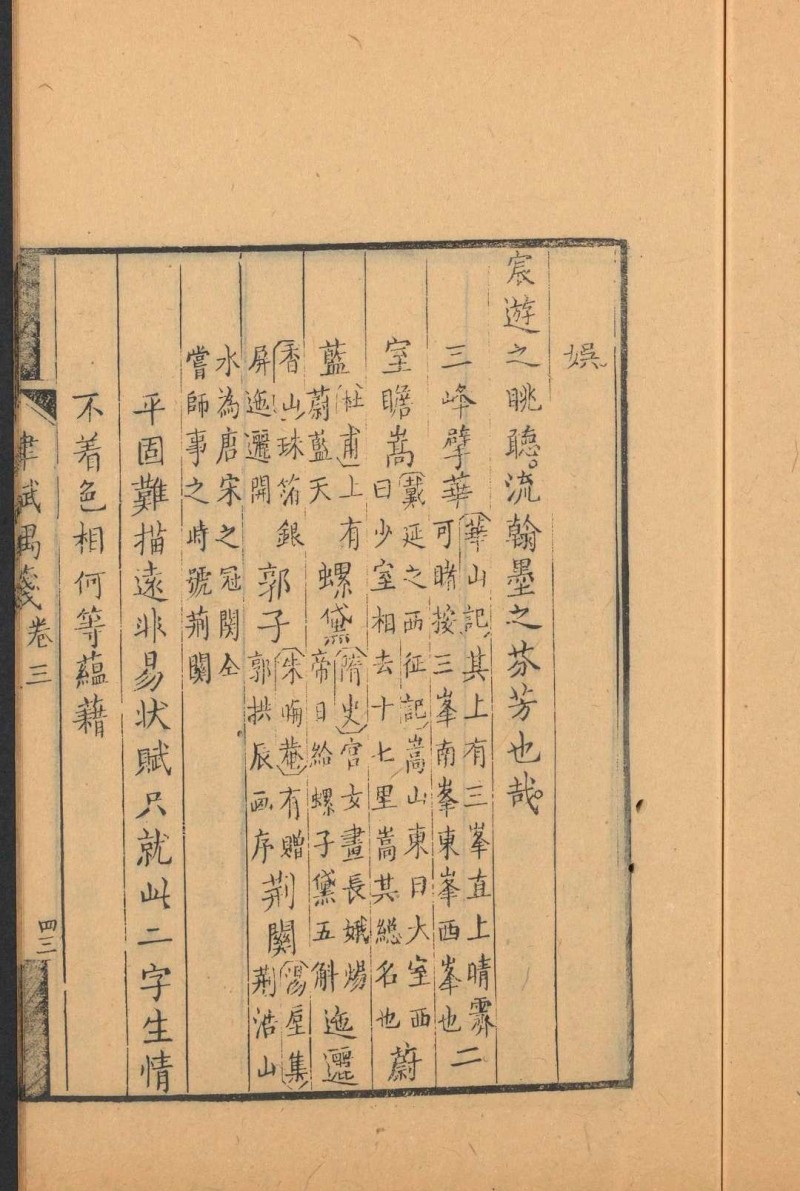 娛
宸遊之眺聽流翰墨之芬芳也哉
三峰擘華華山記其上有三峯直上晴霽可睹按三峯南峯東峯西峯也二
室瞻嵩戴延之西征記嵩山東曰大室西曰少室相去十七里嵩其総名也蔚
藍杜甫上有蔚藍天螺黛隋史宫女畫長娥煬帝日給螺子黛五斛迤邐
香山珠箔銀屏迤邐開郭子朱晦菴有贈郭拱辰画序荊關湯垕集荊浩山
水為唐宋之冠関仝嘗師事之時號荊関
平固難描遠非易状賦只就此二字生情
不着色相何等蘊藉
律賦偶箋卷三
四三